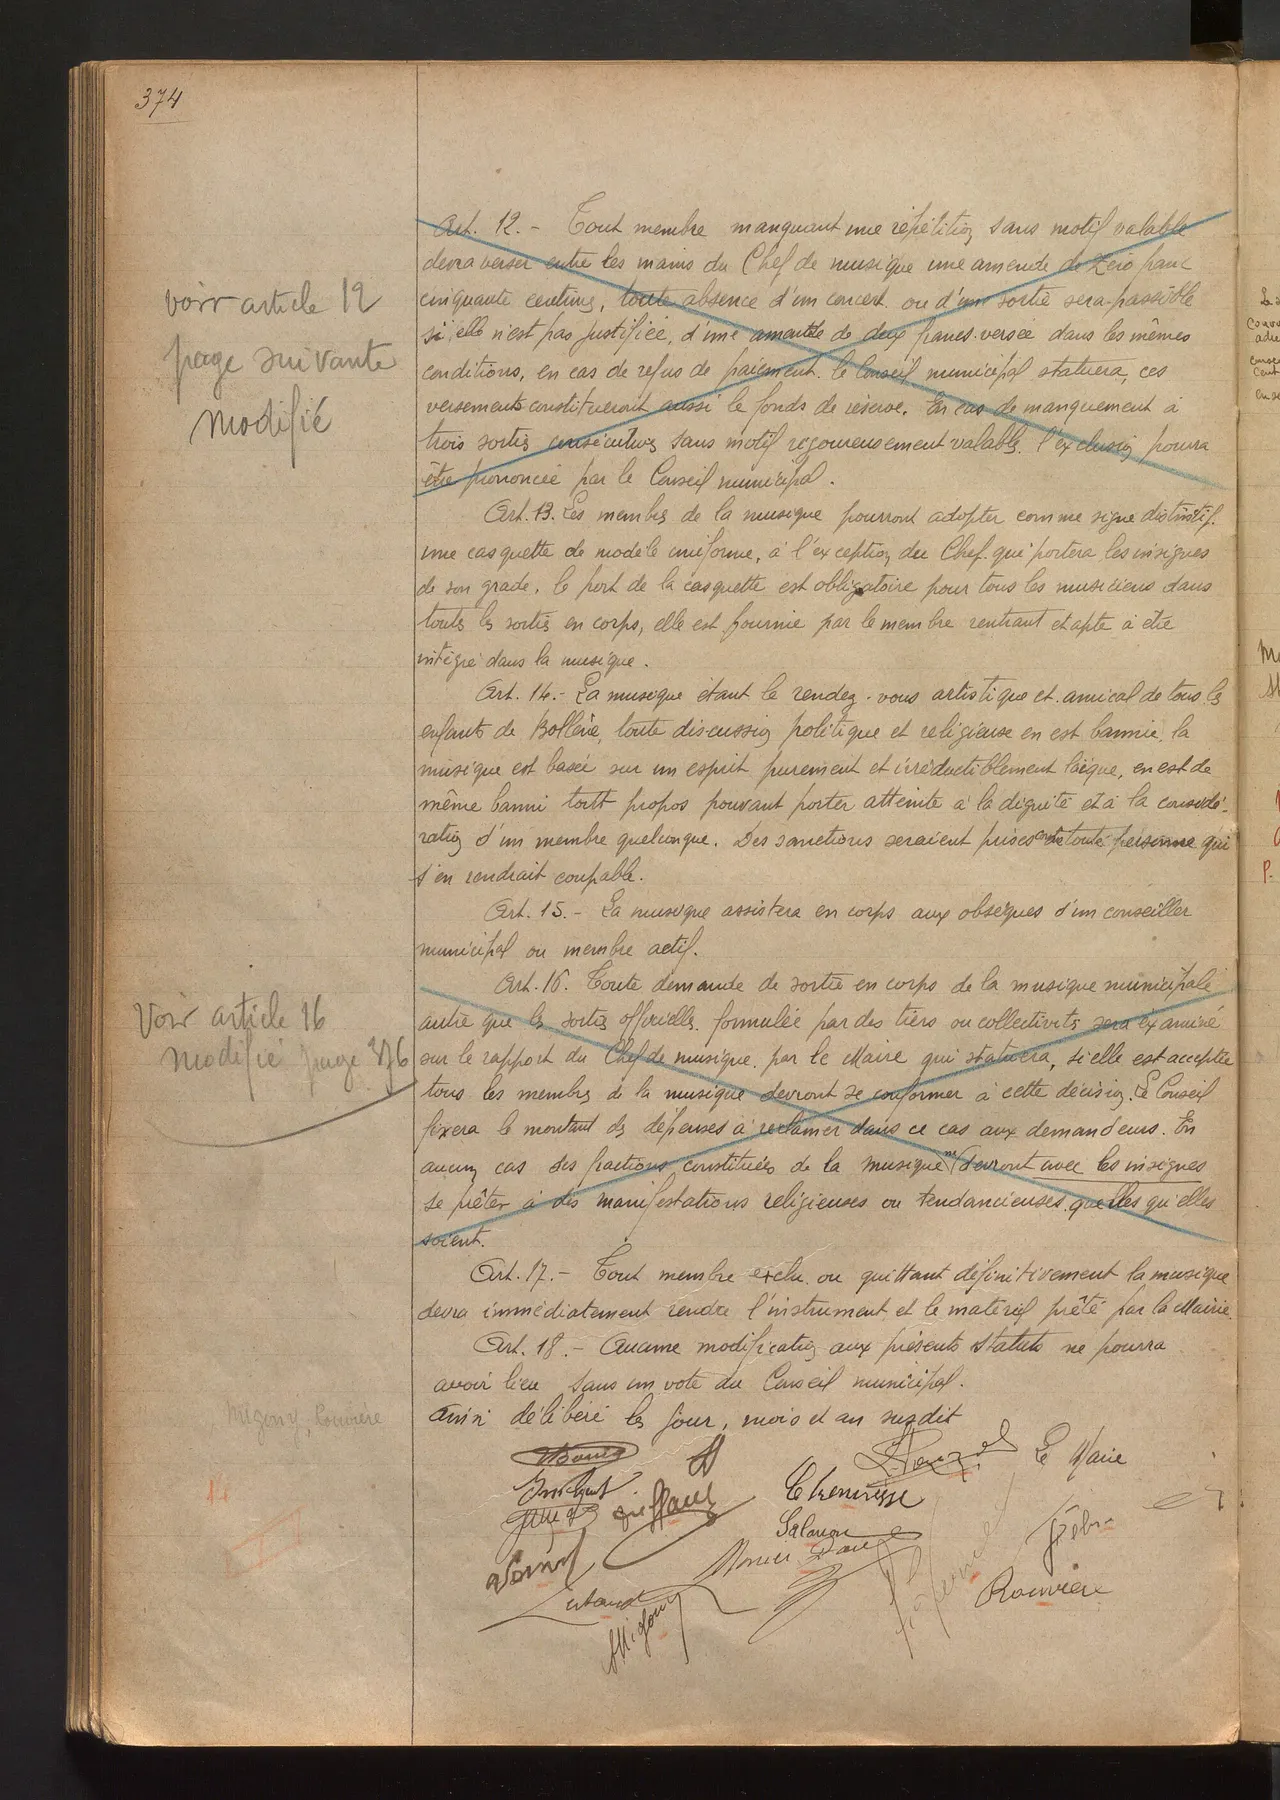 374
voir article 12
page suivante
modifié
Art. 12. - Tout membre manquant une répétition sans motif valable
devra verser entre les mains du Chef de musique une amende de zéro franc
cinquante centimes, toute absence d'un concert ou d'une sortie sera passible
si elle n'est pas justifiée, d'une amende de deux francs versée dans les mêmes
conditions, en cas de refus de paiement le Conseil municipal statuera, ces
versements constitueront aussi le fonds de réserve. En cas de manquement à
trois sorties consécutives sans motif rigoureusement valable l'exclusion pourra
être prononcée par le Conseil municipal.
Art. 13. Les membres de la musique pourront adopter comme signe distinctif
une casquette de modèle uniforme, à l'exception du Chef qui portera les insignes
de son grade. le port de la casquette est obligatoire pour tous les musiciens dans
toutes les sorties en corps, elle est fournie par le membre rentrant et apte à être
intégré dans la musique.
Art. 14. - La musique étant le rendez-vous artistique et amical de tous les
enfants de Bollène, toute discussion politique et religieuse en est bannie, la
musique est basée sur un esprit purement et irréductiblement laïque, en est de
même banni tout propos pouvant porter atteinte à la dignité et à la considé-
ration d'un membre quelconque. Des sanctions seraient prises contre toute personne qui
s'en rendrait coupable.
Art. 15. - La musique assistera en corps aux obsèques d'un conseiller
municipal ou membre actif.
Voir article 16
modifié page 376
Art. 16. Toute demande de sortie en corps de la musique municipale
autre que les sorties officielles formulée par des tiers ou collectivités sera examiné
sur le rapport du Chef de musique par le Maire qui statuera, si elle est acceptée
tous les membres de la musique devront se conformer à cette décision. Le Conseil
fixera le montant des dépenses à réclamer dans ce cas aux demandeurs. En
aucun cas des fractions constituées de la musique ne devront avec les insignes
se prêter à des manifestations religieuses ou tendancieuses quelles qu'elles
soient.
Art. 17. - Tout membre exclu ou quittant définitivement la musique
devra immédiatement rendre l'instrument et le matériel prêté par la Mairie
Art. 18. - Aucune modification aux présents statuts ne pourra
avoir lieu sans un vote du Conseil municipal.
Ainsi délibéré les jour, mois et an susdit
Migony, Rouvière
Le Maire
Salomon
Rouvière
Migony